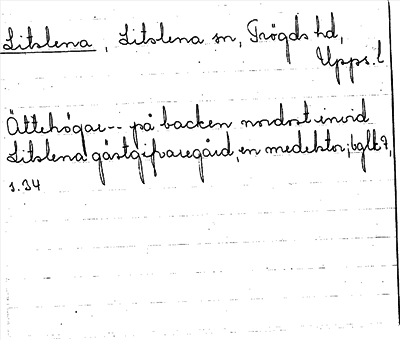 Litslena, Litslena sn, Trögds hd,
Upps. l
Ättehögar -- på backen nordost invid
Litslena gästgifvaregård, en medelstor; bglk 7,
s. 34